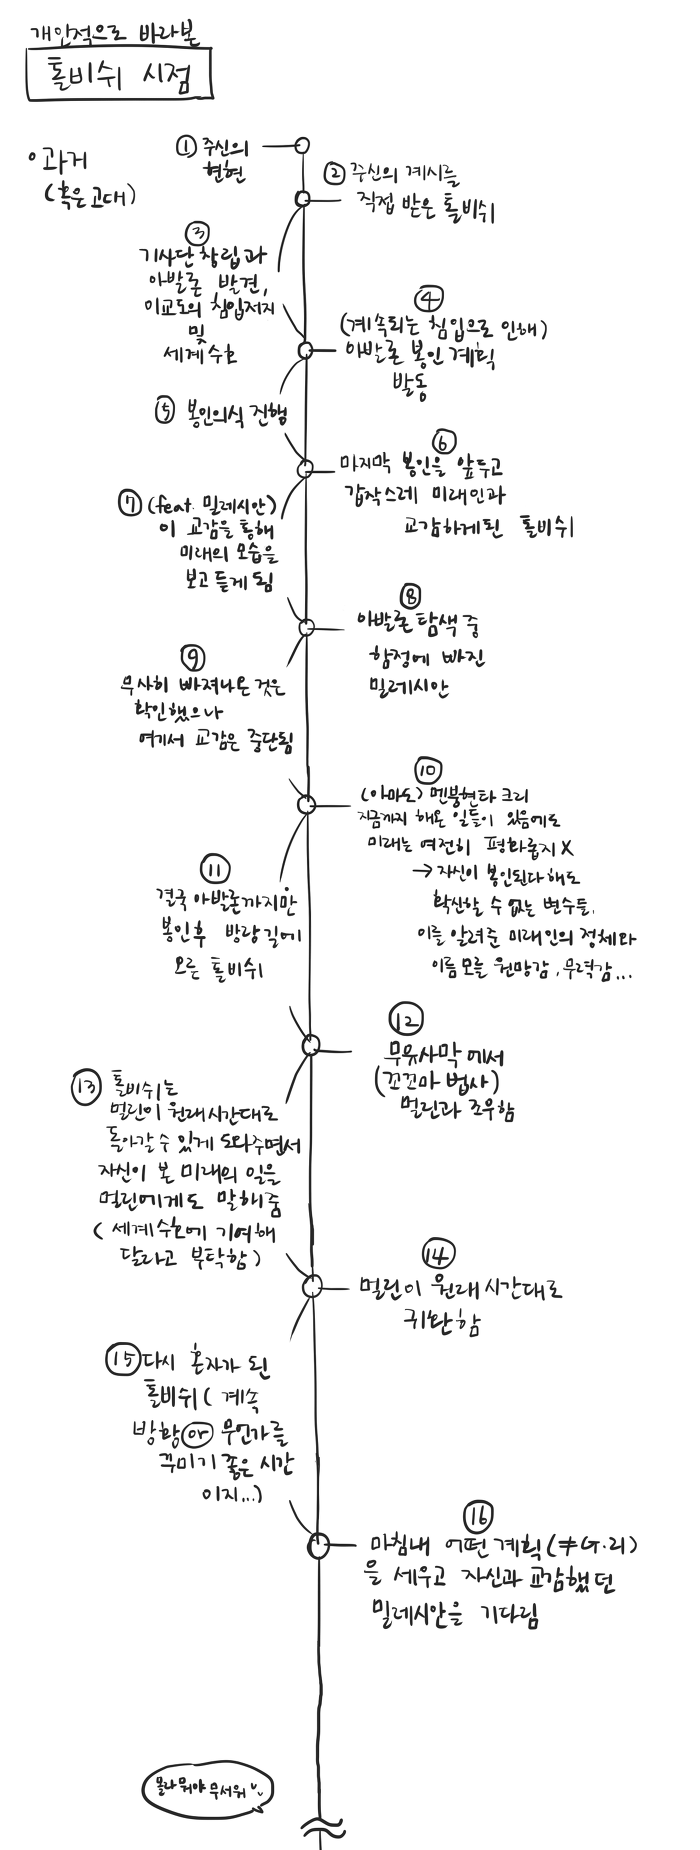 개인적으로 바라본
톨비쉬 시점
과거
(혹은 고대)
① 주신의
현현
② 주신의 계시를
직접 받은 톨비쉬
③
기사단 창립과
아발론 발견,
이교도의 침입저지
및
세계수호
④
(계속되는 침입으로 인해)
아발론 봉인 계획
발동
⑤ 봉인의식 진행
⑥
마지막 봉인을 앞두고
갑작스레 미래인과
교감하게된 톨비쉬
⑦ (feat. 밀레시안)
이 교감을 통해
미래의 모습을
보고 듣게 됨
⑧
아발론 탐색 중
함정에 빠진
밀레시안
⑨
무사히 빠져나온 것은
확인했으나
여기서 교감은 중단됨
⑩
(아마도) 멘붕현타 크리
지금까지 해온 일들이 있음에도
미래는 여전히 평화롭지 X
→ 자신이 봉인된다 해도
확신할 수 없는 변수들.
이를 알려준 미래인의 정체와
이름 모를 원망감, 무력감...
⑪
결국 아발론까지만
봉인후 방랑길에
오른 톨비쉬
⑫
무유사막에서
(꼬꼬마 법사)
멀린과 조우함
⑬ 톨비쉬는
멀린이 원래시간대로
돌아갈 수 있게 도와주면서
자신이 본 미래의 일을
멀린에게도 말해줌
(세계수호에 기여해
달라고 부탁함)
⑭
멀린이 원래 시간대로
귀환함
⑮ 다시 혼자가 된
톨비쉬 (계속
방황 or 무언가를
꾸미기 좋은 시간
이지...)
⑯
마침내 어떤 계획(≠G.21)
을 세우고 자신과 교감했던
밀레시안을 기다림
몰라 뭐야 무서워